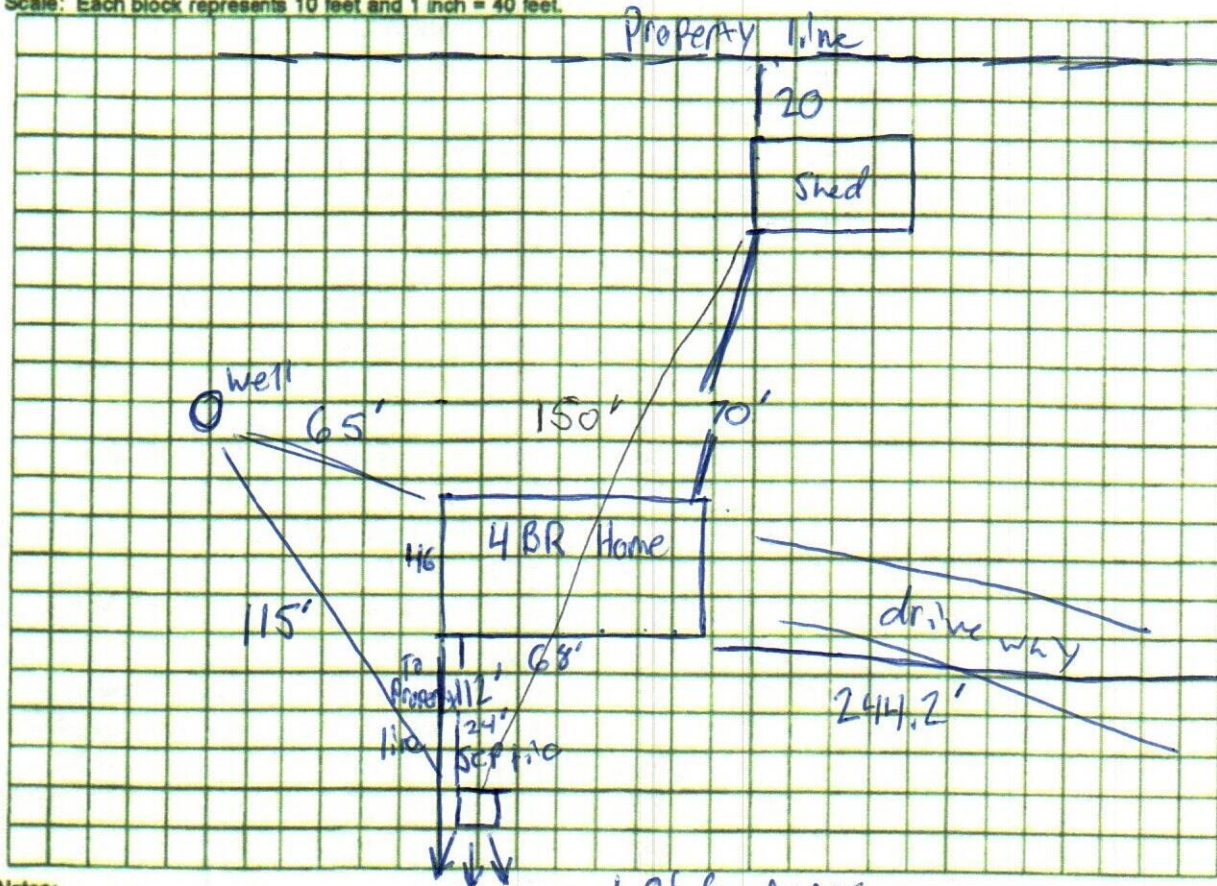 Scale: Each block represents 10 feet and 1 inch = 40 feet.
Property line
20
Shed
Well
65'
150'
70'
4 BR Home
46
115'
68'
drive way
To
Property
112'
line
24'
Septic
244.2'
Notes: